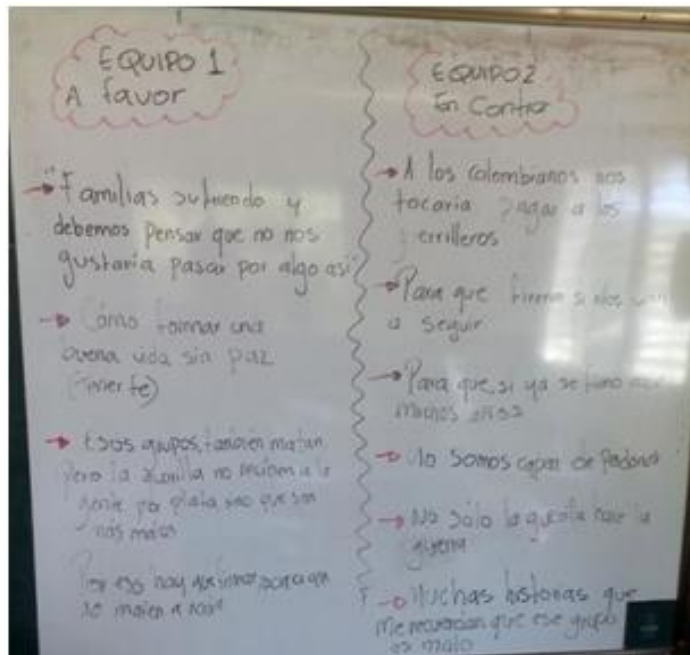 EQUIPO 1
A favor
"Familias sufriendo y
debemos pensar que no nos
gustaria pasar por algo así"
Cómo formar una
buena vida sin paz
Esos grupos, también matan
pero la
gente por plata sino que son
más malos
Por eso hay que firmar para que
no maten a nadie
EQUIPO 2
En Contra
A los colombianos nos
tocaria pagar a los
errilleros
Para que firmar si ellos van
a seguir
Para que, si ya se
muchos
No somos capaz de Perdonar
No sólo la hace la
guerra
Muchas historias que
me recuerdan que ese grupo
es malo